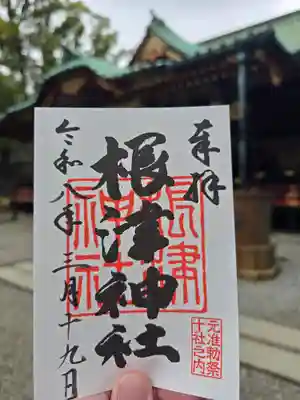 奉拝
根津神社
根津神社
元准勅祭
十社之内
令和八年三月十九日